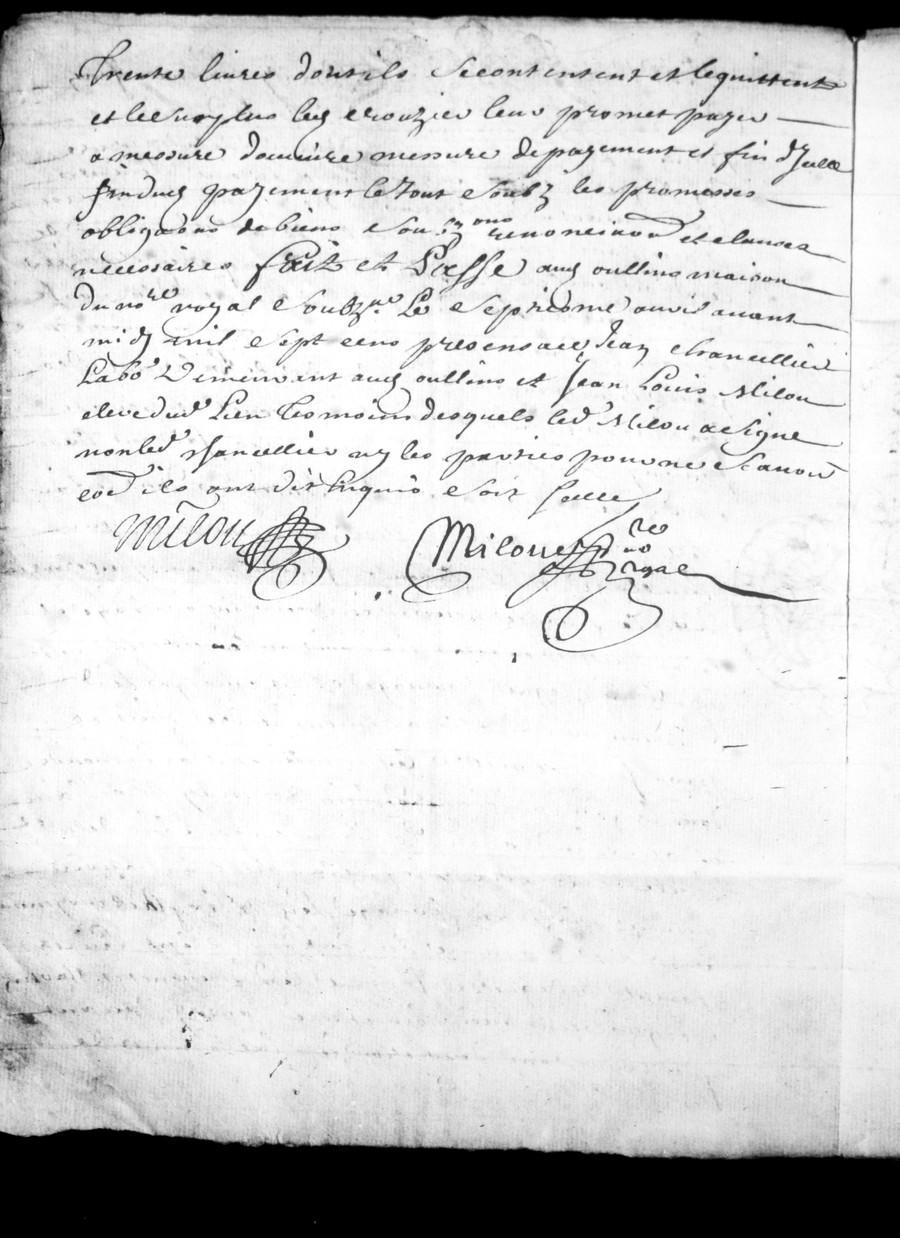 Trente livres dont ils se contentent et le quittent
et le surplus led crouzier leur promet payer
a messure de payement et fin d'Iceux
payement le tout soubz les promesses
obliga͠ons de biens soubz͠ons renoncia͠on et clauses
necessaires fait et Passé aud oullins maison
du no͠re royal soubz͠ne Le Septiesme avril avant
midy mil Sept cens presens a ce Jean chancellier
Labo͠r demeurant aud oullins et Jean Louis Milou
dud Lieu tesmoins desquels led Milou a Signé
non led chancellier ny les parties pour ne scavoir
ils ont dit Enquis
Milou
Milou no͠re
royal